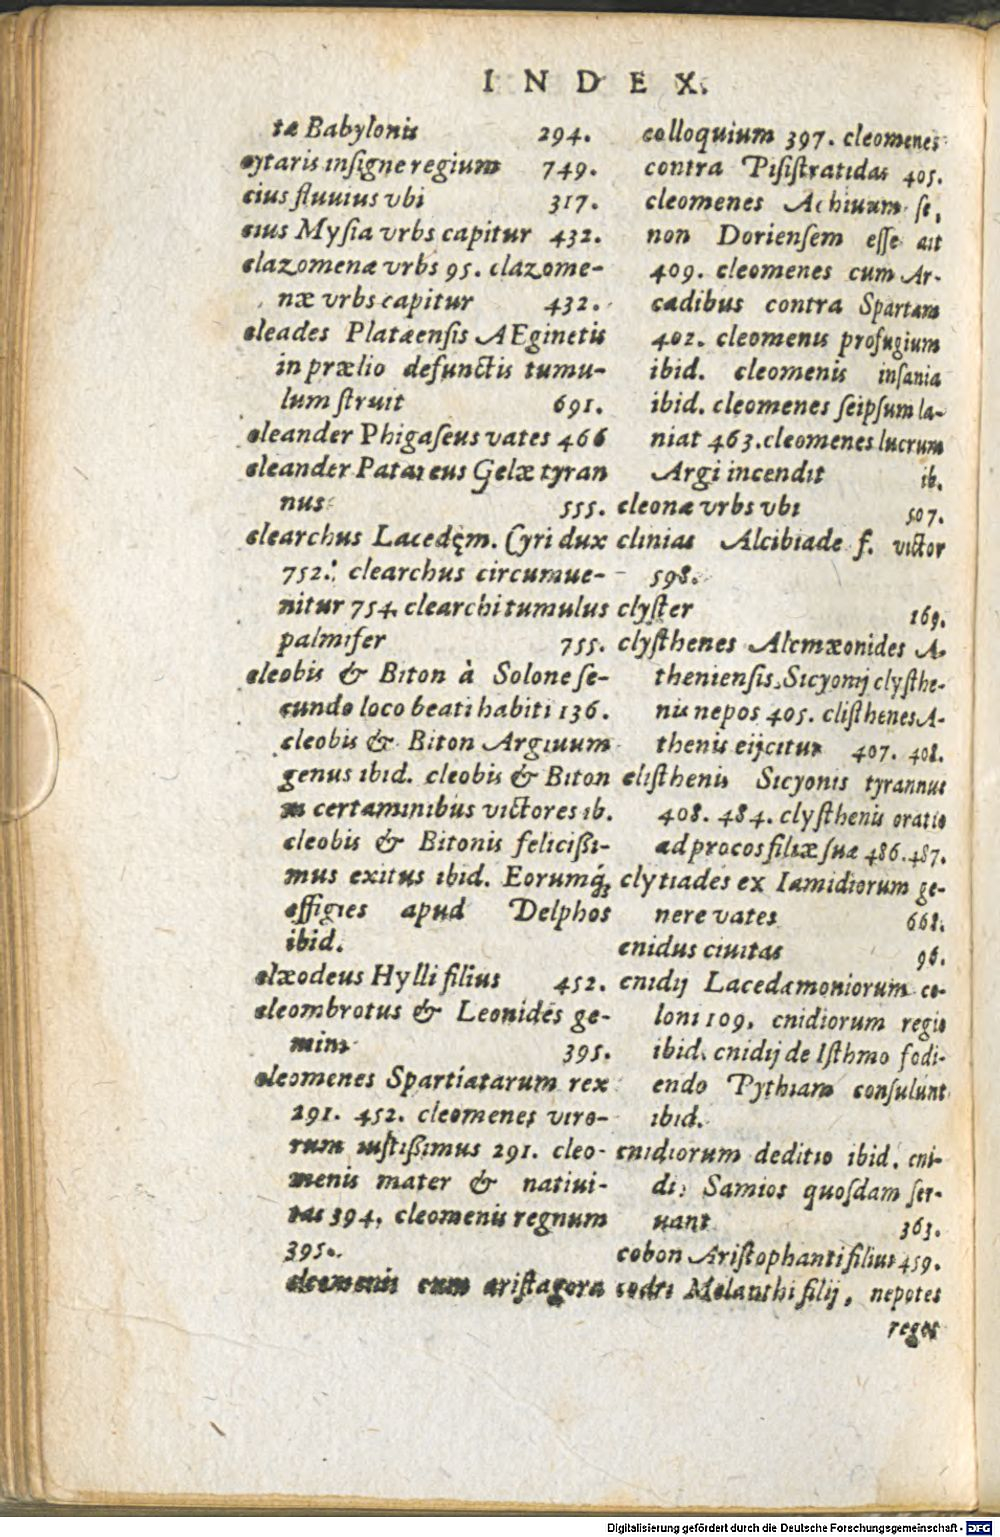 INDEX.
tæ Babylonis 294.
cytaris insigne regium 749.
cius fluuius vbi 317.
cius Mysia vrbs capitur 432.
clazomenæ vrbs 95. clazome-
næ vrbs capitur 432.
cleades Platæensis AEginetis
in prælio defunctis tumu-
lum struit 691.
cleander Phigaseus vates 466
cleander Patareus Gelæ tyran
nus 555.
clearchus Lacedęm. Cyri dux
752. clearchus circumue-
nitur 754. clearchi tumulus
palmifer 755.
cleobis & Biton à Solone se-
cundo loco beati habiti 136.
cleobis & Biton Argiuum
genus ibid. cleobis & Biton
in certaminibus victores ib.
cleobis & Bitonis felicißi-
mus exitus ibid. Eorumq́;
effigies apud Delphos
ibid.
clæodeus Hylli filius 452.
cleombrotus & Leonides ge-
mini 395.
cleomenes Spartiatarum rex
291. 452. cleomenes viro-
rum iustißimus 291. cleo-
menis mater & natiui-
tas 394. cleomenis regnum
395.
cleomenis cum aristagora
colloquium 397. cleomenes
contra Pisistratidas 405.
cleomenes Achiuum se,
non Doriensem esse ait
409. cleomenes cum Ar-
cadibus contra Spartam
402. cleomenis profugium
ibid. cleomenis insania
ibid. cleomenes seipsum la-
niat 463. cleomenes lucrum
Argi incendit ib.
cleonæ vrbs vbi 507.
clinias Alcibiade f. victor
598.
clyster 169.
clysthenes Alcmæonides A-
theniensis, Sicyonij clysthe-
nis nepos 405. clisthenes A-
thenis eijcitur 407. 408.
clisthenis Sicyonis tyrannus
408. 484. clysthenis oratio
ad procos filiæ suæ 486. 487.
clytiades ex Iamidiorum ge-
nere vates 668.
cnidus ciuitas 96.
cnidij Lacedæmoniorum co-
loni 109. cnidiorum regio
ibid. cnidij de Isthmo fodi-
endo Pythiam consulunt
ibid.
cnidiorum deditio ibid. cni-
dij Samios quosdam ser-
uant 363.
cobon Aristophanti filius 459.
codri Melanthi filij, nepotes
reges
Digitalisierung gefördert durch die Deutsche Forschungsgemeinschaft - DFG